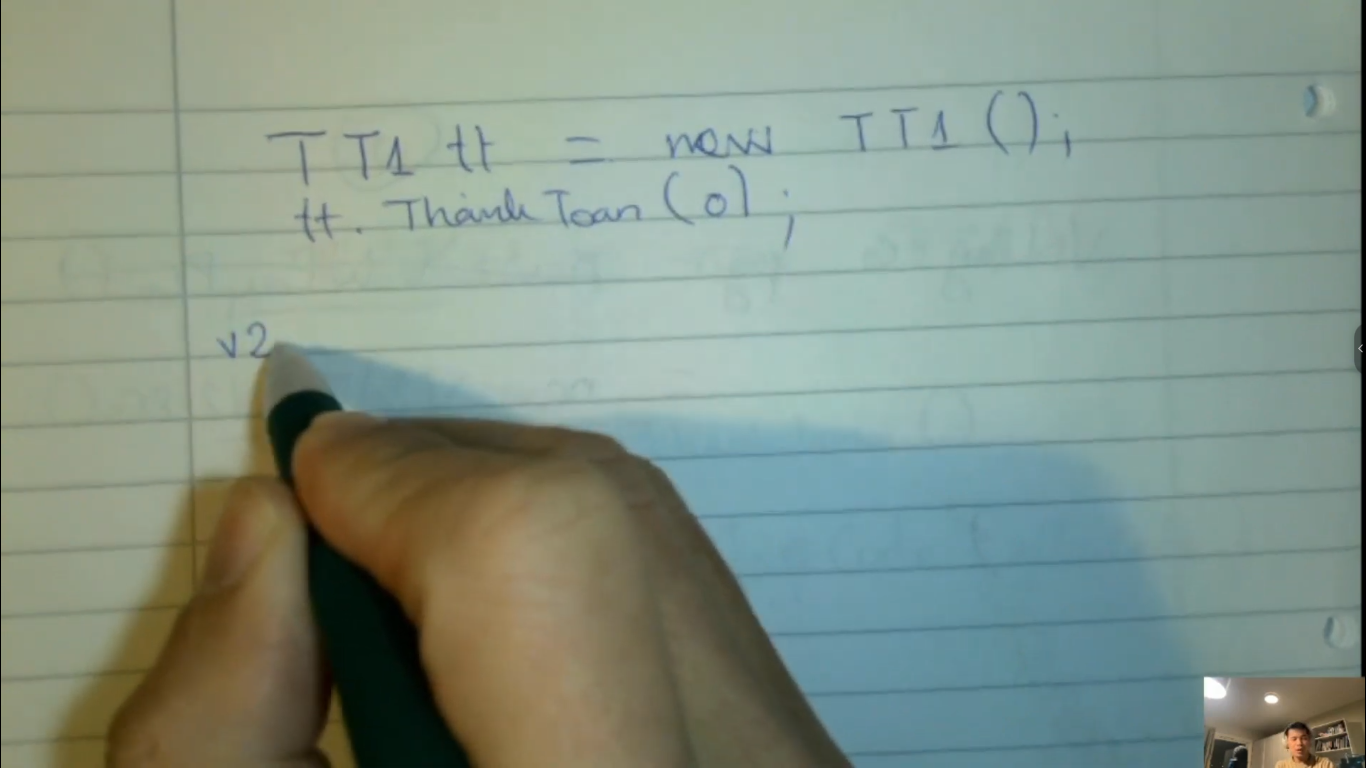 TT1 tt = new TT1();
tt. Thanh Toan (o);
v2